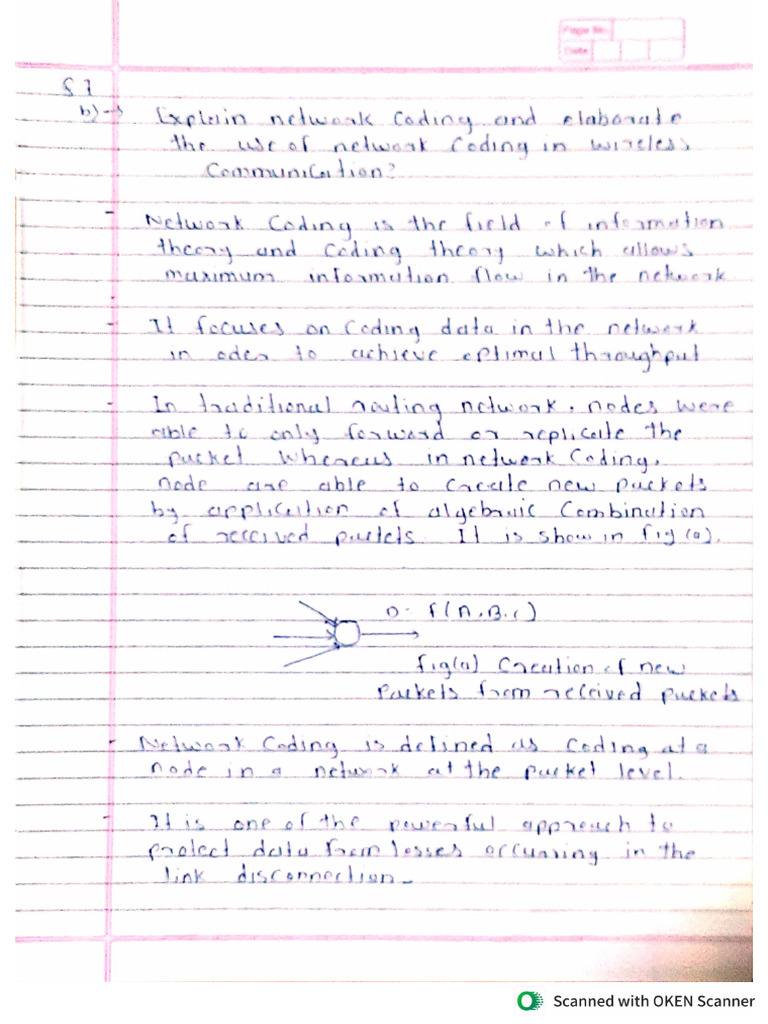 Page No.
Date
b) → Explain network Coding and elaborate
the use of network Coding in wireless
Communication?
- Network Coding is the field of information
theory and coding theory which allows
maximum information flow in the network
- It focuses on coding data in the network
in oder to achieve optimal throughput
- In traditional routing network, nodes were
able to only forward or replicate the
packet whereas in network Coding,
node are able to create new packets
by application of algebraic Combination
of received packets. It is show in fig (a).
f(A,B,C)
fig(a) Creation of new
Packets from received packets
- Network Coding is defined as Coding at a
node in a network at the packet level.
- It is one of the powerful approach to
protect data from losses occurring in the
link disconnection-
Scanned with OKEN Scanner